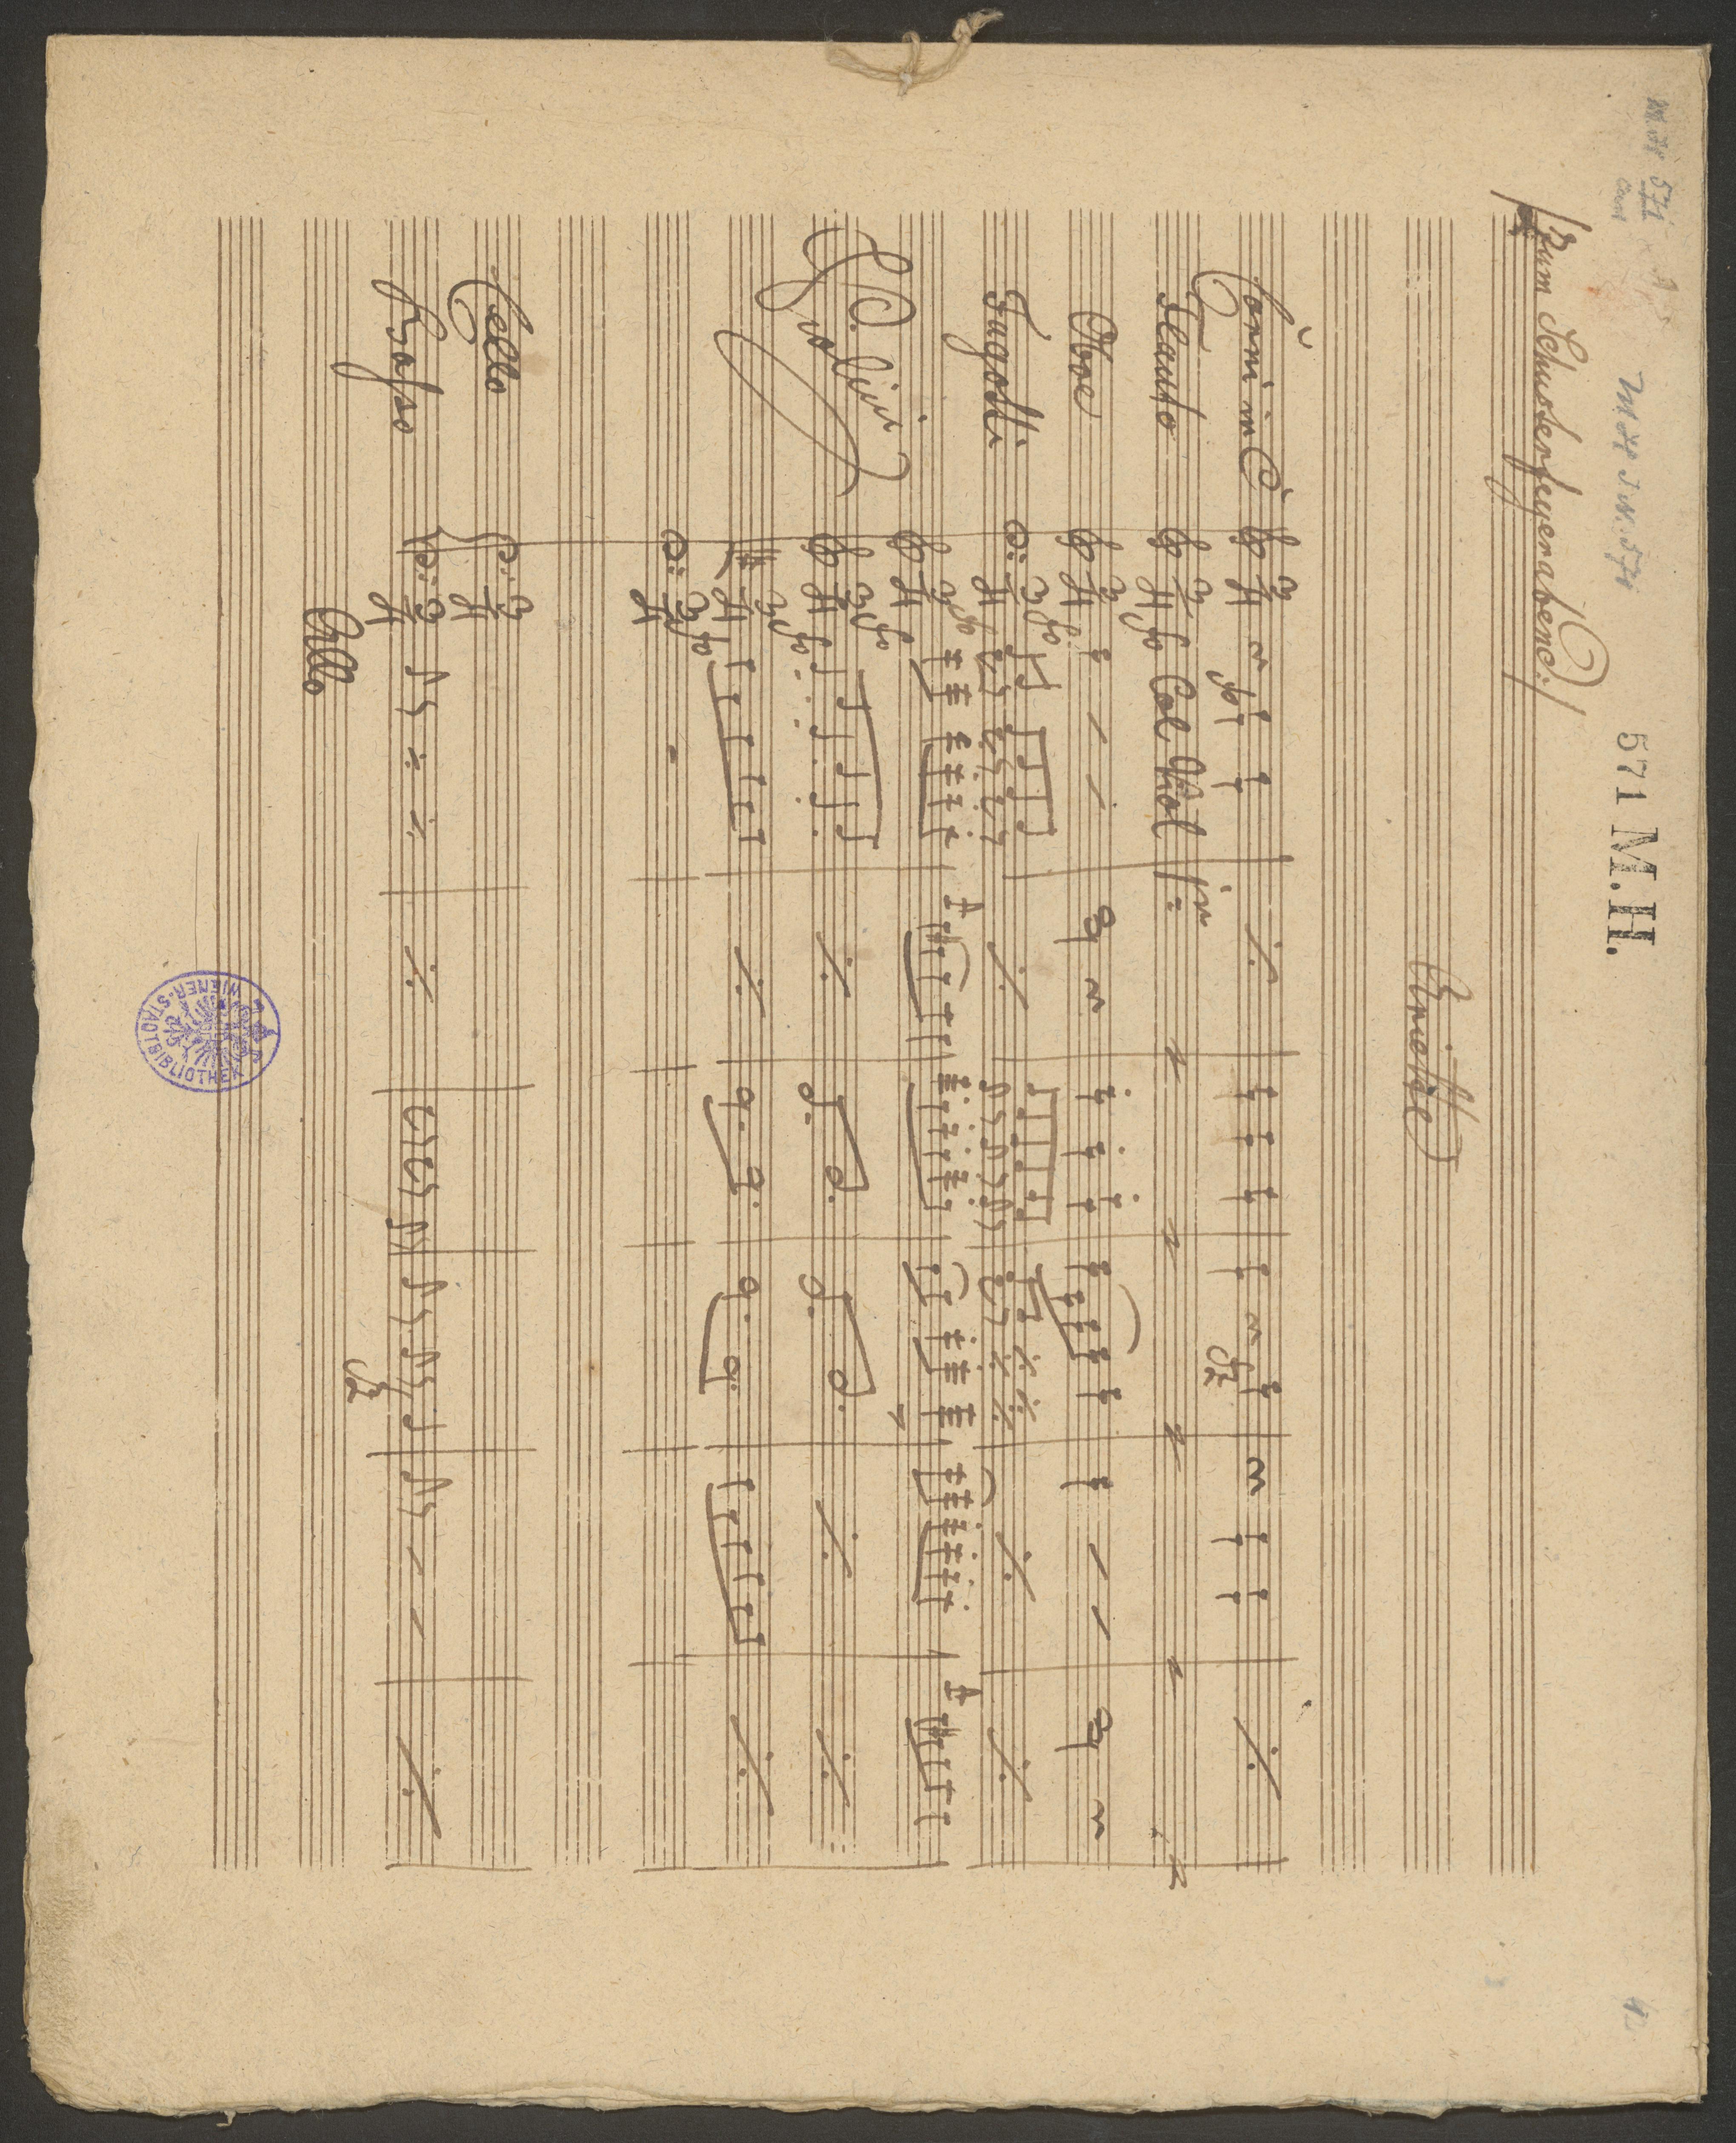 M. H. 571
M H I N. 571
571 M.H.
/: Zum Schusterfeyerabend :/
Ariette
Corni in C
Flauto Col Viol
in
8:
Oboe
Fagotti
Violini
Cello
Basso
fz
Allo
WIENER-STADTBIBLIOTHEK